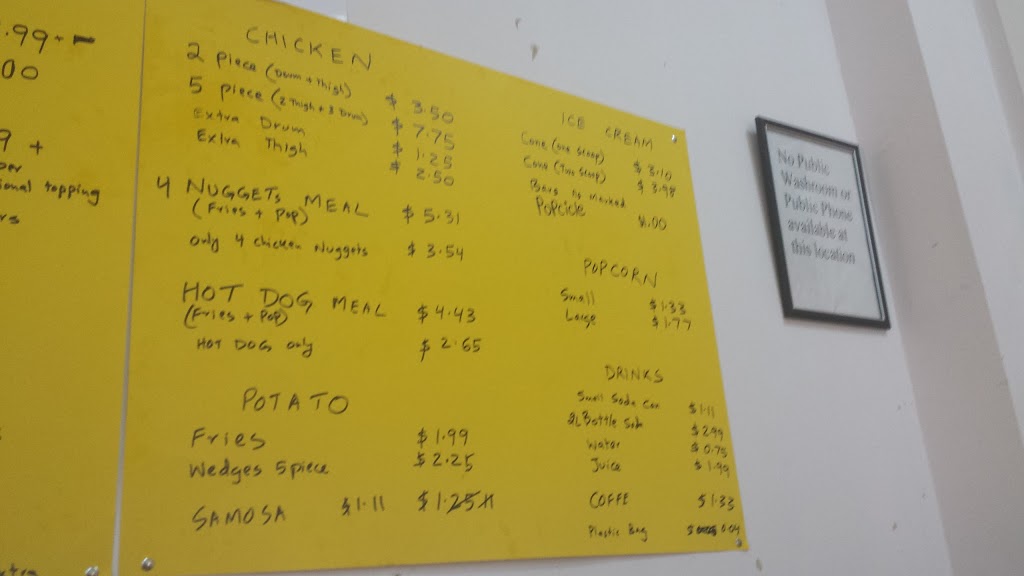 .99
00
9 +
onal topping
CHICKEN
2 piece (Drum + Thigh) $ 3.50
5 piece (2 Thigh + 3 Drum) $ 7.75
Extra Drum $ 1.25
Extra Thigh $ 2.50
4 NUGGETS MEAL $ 5.31
(Fries + Pop)
only 4 chicken Nuggets $ 3.54
HOT DOG MEAL $ 4.43
(Fries + Pop)
HOT DOG only $ 2.65
POTATO
Fries $ 1.99
Wedges 5 piece $ 2.25
SAMOSA $1.11 $1.25
ICE CREAM
Cone (one scoop) $ 3.10
Cone (Two scoop) $ 3.98
Bars as marked
Popcicle $1.00
POPCORN
Small $1.33
Large $1.77
DRINKS
Small Soda Can $1.11
2L Bottle Soda $2.99
Water $0.75
Juice $1.99
COFFE $1.33
Plastic Bag 0.04
No Public
Washroom or
Public Phone
available at
this location